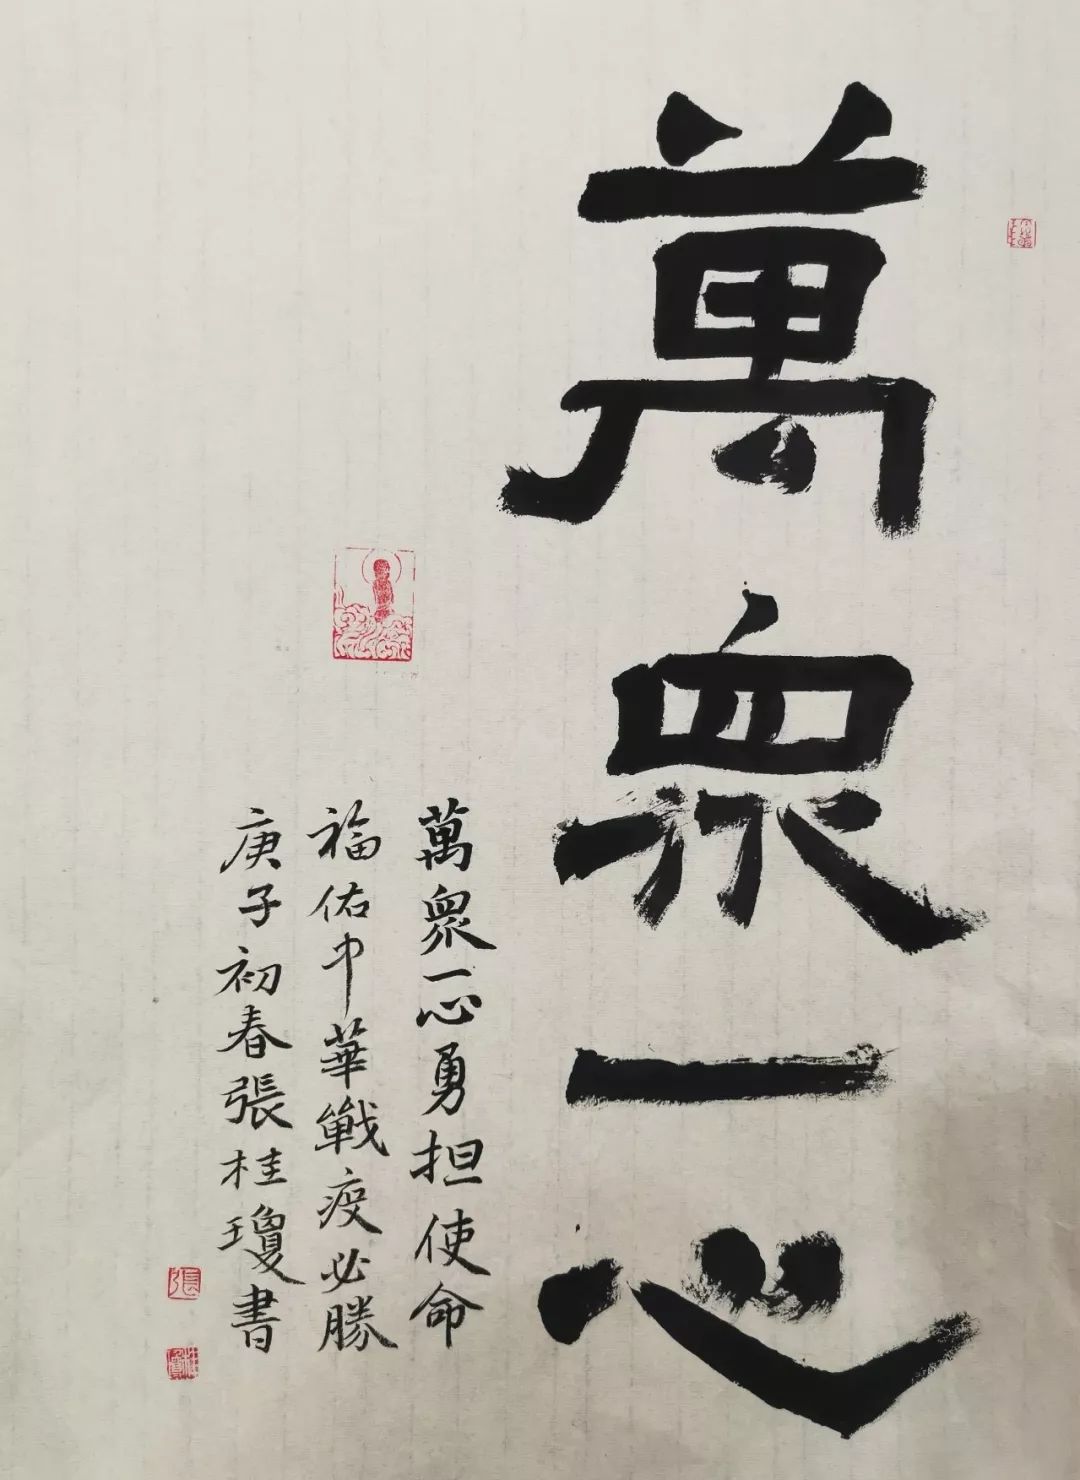 萬眾一心
萬眾一心勇担使命
福佑中華戰疫必勝
庚子初春張桂瓊書
張
桂瓊